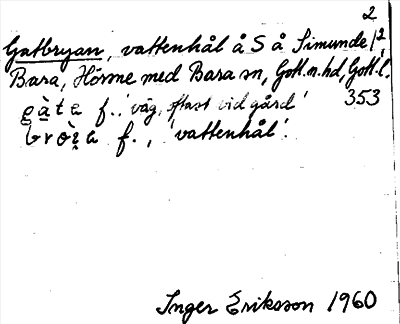 2
Gatbryan, vattenhål å S å Simunde 1/2,
Bara, Hörsne med Bara sn, Gotl. n. hd, Gotl. l.
gàta f. 'väg, oftast vid gård' 353
f., 'vattenhål'.
Inger Eriksson 1960